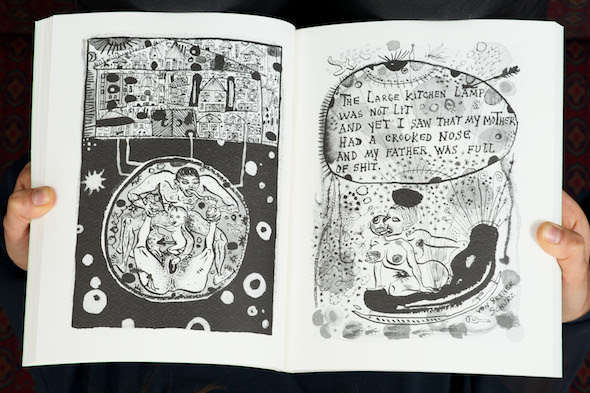 THE LARGE KITCHEN LAMP
WAS NOT LIT
AND YET I SAW THAT MY MOTHER
HAD A CROOKED NOSE
AND MY FATHER WAS FULL
OF SHIT.